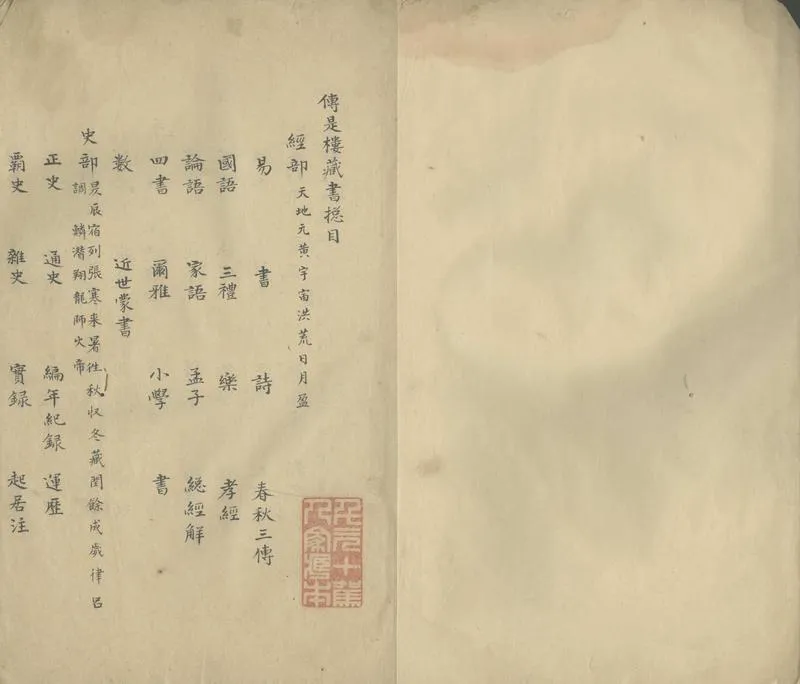 傳是樓藏書揔目
經部 天地元黄宇宙洪荒日月盈
易 書 詩 春秋三傳
國語 三禮 樂 孝經
論語 家語 孟子 總經解
四書 爾雅 小學 書
数 近世蒙書
史部 昃辰宿列張寒来暑往秋収冬藏閏餘成歲律呂
調 鱗潛翔龍師火帝
正史 通史 編年紀録 運歷
覇史 雜史 實録 起居注